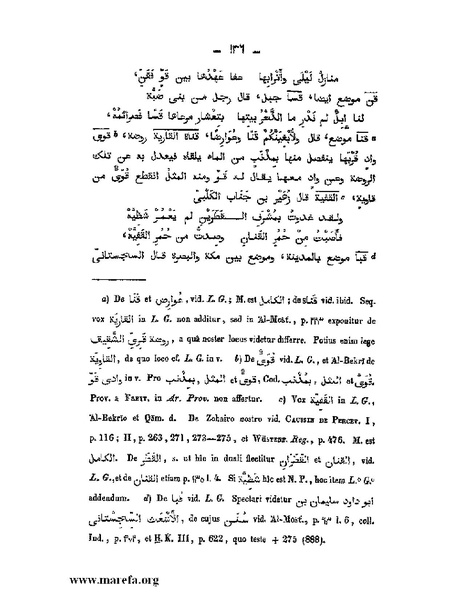 — ١٣٦ —
منازلُ لَيْلَى وأَتْرابِها عفا عَهْدُها بين قَوٍّ فَقَنِّ،
قَنّ موضع ايضا، قَسَا جبل، قال رجل من بنى ضبّة
لنا إبِلٌ لم نَدْرِ ما الذُّعْرُ بيتها بتِعْشار مرعاها قَسَا فصرائمُهْ،
ᵃ قَنَا موضع، قال ولأَبْغِيَنَّكم قَنًا وعُوارِضًا، قناة القارية روضة، ᵇ قُوَىّ
واد قُرْبَها ينفصل منها بمِذْنَب من الماء يلقاه فيعدل به عن تلك
الروضة وعن واد معها يقال له قَوّ ومنه المثل انقطع قُوَىٌّ من
قاوية، ᶜ القفية قال زُهَيْر بن جَنَاب الكَلْبىّ
ولقد غدوتُ بمُشْرِف الـقطرين لم يَغْمِزْ شَظِيَّهْ
فأَصَبْتُ مِنْ حُمُرِ القَنَانِ وصِدتُّ من حُمُرِ القَفِيَّهْ،
ᵈ قُبَا موضع بالمدينة، وموضع بين مكة والبصرة قال السجستانىّ
a) De قَنَا et عُوارِض, vid. L. G.; M. est الكامل; de قناة vid. ibid. Seq.
vox القارية in L. G. non additur, sed in Al-Mošt., p. ٣٣٣ expouitur de
روضة قرىّ الشقيف, a quâ noster locus videtur differre. Potius enim lego
القارية, de quo loco cf. L. G. in v. b) De قُوَىّ vid. L. G., et Al-Bekrî de
وادى قَوّ in v. Pro قوىّ et المثل, بمذنب, Cod. بمِذْنب, المثل et قُوَىّ.
Prov. a Freyt. in Ar. Prov. non affertur. c) Vox القفية in L. G.,
Al-Bekrîo et Qâm. d. De Zohairo nostro vid. Caussin de Perceval I,
p. 116; II, p. 263, 271, 273—275, et Wüstenf. Reg., p. 476. M. est
الكامل. De القَطْر, s. ut hic in duali flectitur القطران et القنان, vid.
L. G., et de القنان etiam p. ١٣٠ l. 4. Si شظيّة hic est N. P., hoc item L. G.
addendum. d) De قُبا vid. L. G. Spectari videtur ابو داود سليمان بن
الأَشْعَث السِّجِسْتانى, de cujus سُنَن vid. Al-Mošt., p. ٣٠ l. 6, coll.
Ind., p. ٣٠٢, et H. K. III, p. 622, quo teste + 275 (888).
www.marefa.org